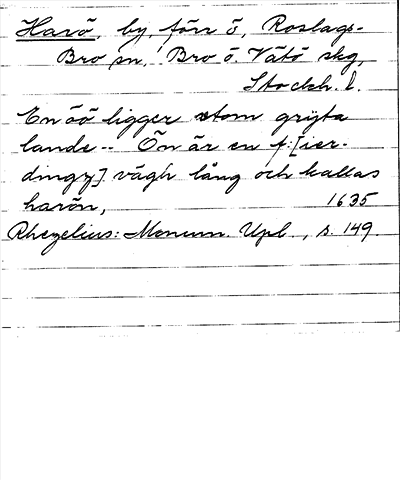 Harö, by, förr ö, Roslags-
Bro sn, Bro o. Vätö skg,
Stockh. l.
En öö ligger utom gryta
lande -- Ön är en f:[ier-
dingz] vägh lång och kallas
harön, 1635
Rhezelius: Monum. Upl., s. 149.